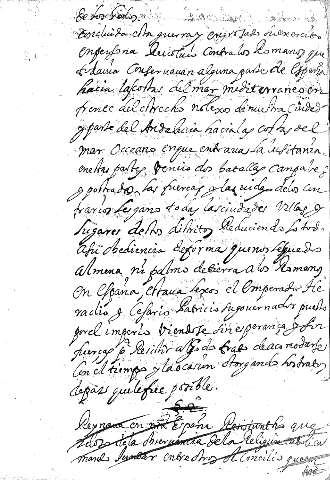 de los Godos
Concluida esta guerra y engrosado su exercito
en persona Revolvio contra los Romanos que
todavia Conservavan alguna parte de España
hacia las costas del mar mediterraneo en
frente del estrecho no lexos de nuestra Ciudad
y parte del Andalucia hacia las costas del
mar Occeano en que entrava la Lusitania
en estas partes vencio dos batallas Campales
y postrados las fuerças y las vidas de los con
trarios les gano todas las ciudades Villas y
lugares de los distritos Reduciendolos todos
a su obediencia de forma que no les quedo
Almena ni palmo de tierra a los Romanos
en España, estava lexos el emperador He
raclio y Cesario Patricio su governador puesto
por el imperio viendose sin esperança y sin
fuerças p Resistir al godo trato de acomodarse
con el tiempo y la ocasion otorgando los tratos
de paz que le fue posible.
Reynava en España
de la observancia de la Religion catolica
mando juntar entre otros el Concilio